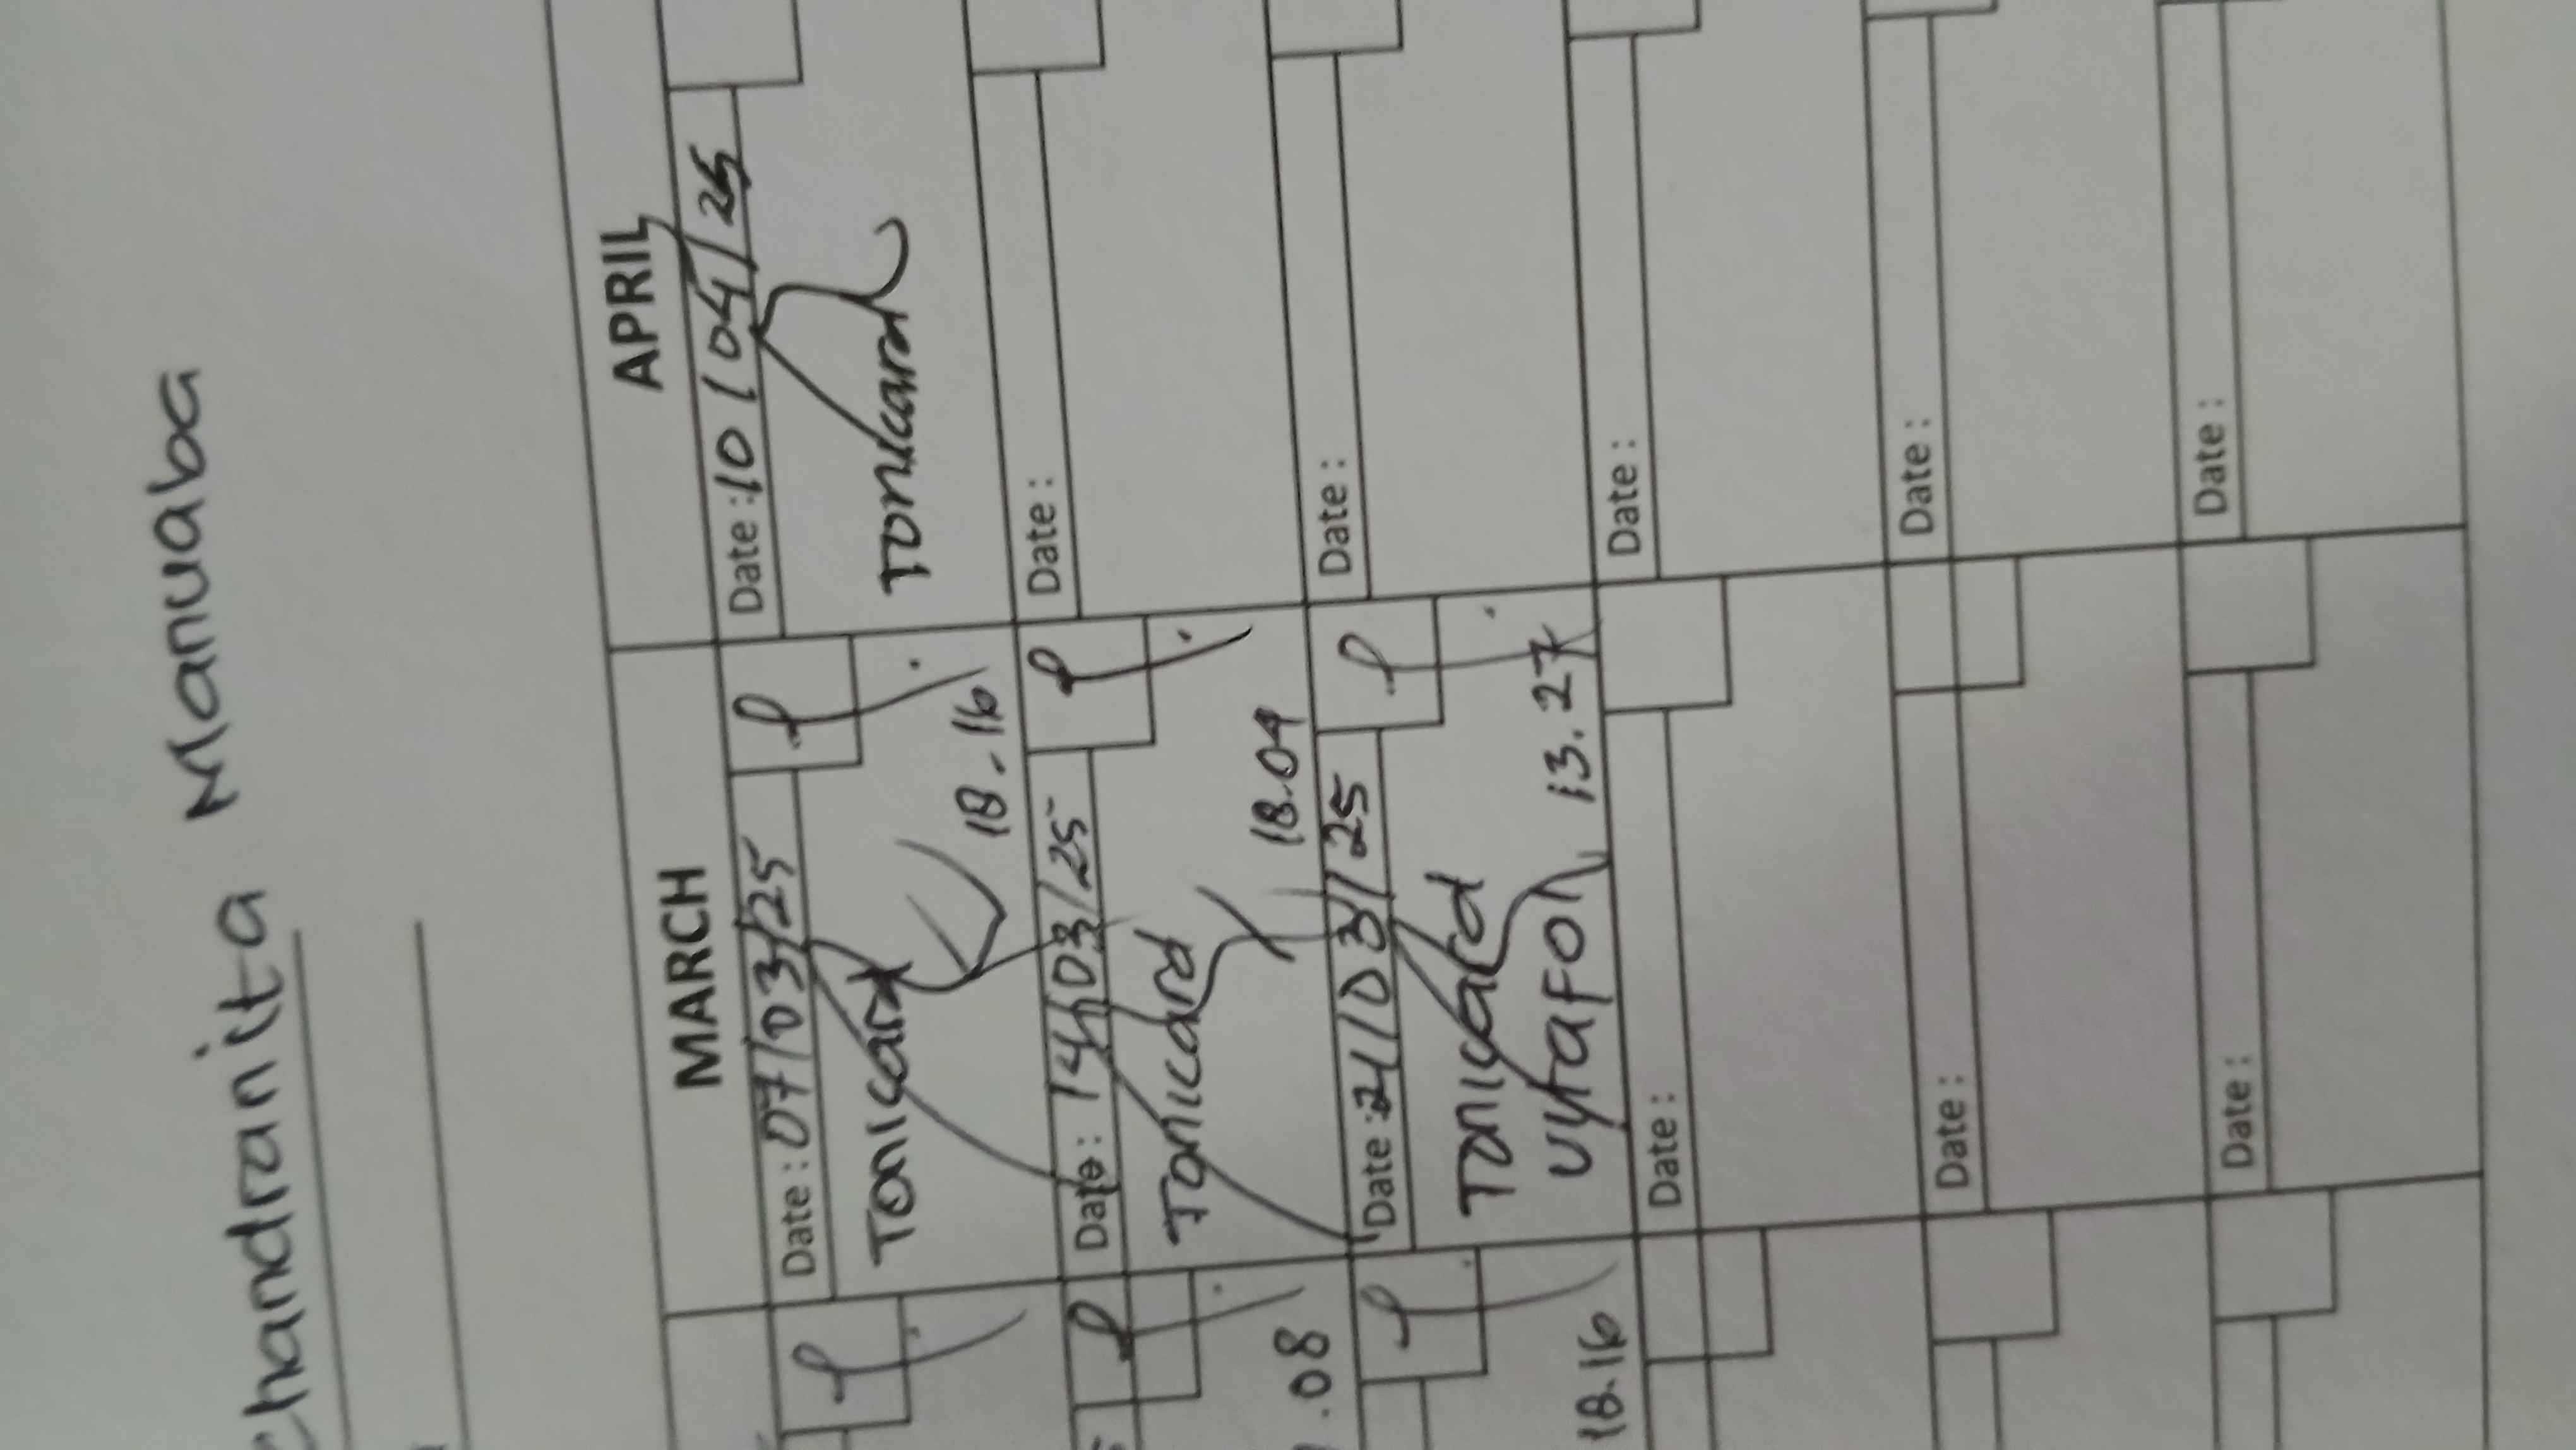 Chandranita Manuaba
MARCH
APRIL
Date : 07/03/25
Tonicard
18.16
Date : 14/03/25
Tonicard
18.04
Date : 21/03/25
Tonicard
13.27
Date :
Date :
Date :
Date : 10/04/25
Tonicard
Date :
Date :
Date :
Date :
Date :
.08
18.16